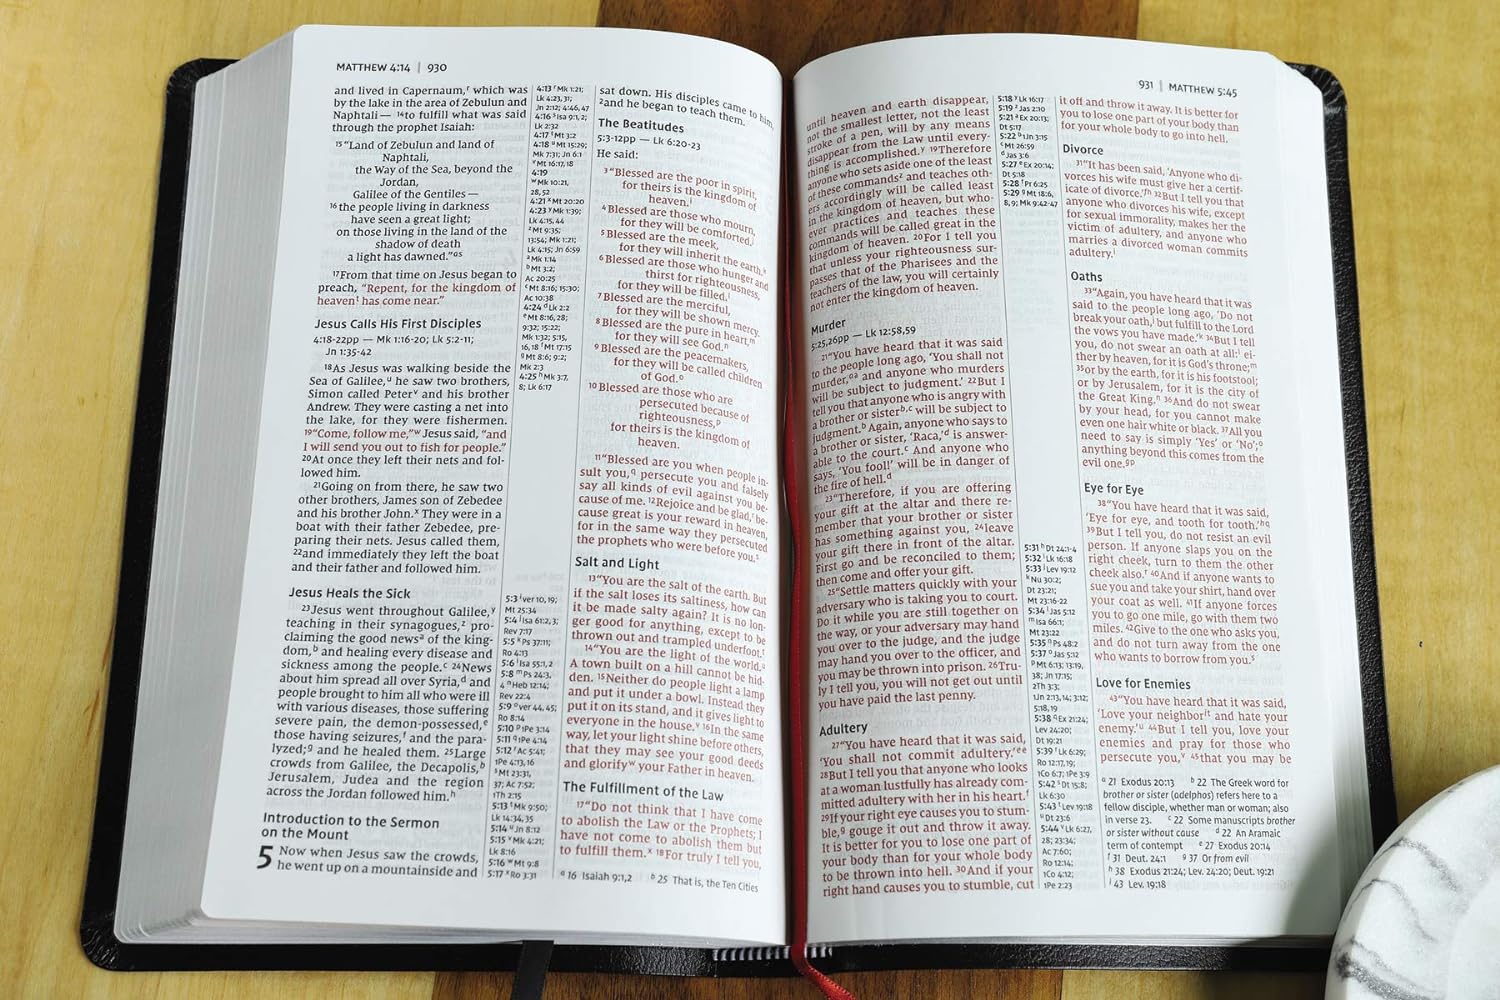 MATTHEW 4:14 | 930
and lived in Capernaum,ʳ which was
by the lake in the area of Zebulun and
Naphtali — ¹⁴to fulfill what was said
through the prophet Isaiah:
¹⁵“Land of Zebulun and land of
Naphtali,
the Way of the Sea, beyond the
Jordan,
Galilee of the Gentiles —
¹⁶the people living in darkness
have seen a great light;
on those living in the land of the
shadow of death
a light has dawned.”ᵃˢ
¹⁷From that time on Jesus began to
preach, “Repent, for the kingdom of
heavenᵗ has come near.”
Jesus Calls His First Disciples
4:18-22pp — Mk 1:16-20; Lk 5:2-11;
Jn 1:35-42
¹⁸As Jesus was walking beside the
Sea of Galilee,ᵘ he saw two brothers,
Simon called Peterᵛ and his brother
Andrew. They were casting a net into
the lake, for they were fishermen.
¹⁹“Come, follow me,”ʷ Jesus said, “and
I will send you out to fish for people.”
²⁰At once they left their nets and fol-
lowed him.
²¹Going on from there, he saw two
other brothers, James son of Zebedee
and his brother John.ˣ They were in a
boat with their father Zebedee, pre-
paring their nets. Jesus called them,
²²and immediately they left the boat
and their father and followed him.
Jesus Heals the Sick
²³Jesus went throughout Galilee,ʸ
teaching in their synagogues,ᶻ pro-
claiming the good newsᵃ of the king-
dom,ᵇ and healing every disease and
sickness among the people.ᶜ ²⁴News
about him spread all over Syria,ᵈ and
people brought to him all who were ill
with various diseases, those suffering
severe pain, the demon-possessed,ᵉ
those having seizures,ᶠ and the para-
lyzed;ᵍ and he healed them. ²⁵Large
crowds from Galilee, the Decapolis,ᵇ
Jerusalem, Judea and the region
across the Jordan followed him.ʰ
Introduction to the Sermon
on the Mount
5 Now when Jesus saw the crowds,
he went up on a mountainside and
4:13 ʳMk 1:21;
Lk 4:23, 31;
Jn 2:12; 4:46, 47
4:16 ˢIsa 9:1, 2;
Lk 2:32
4:17 ᵗMt 3:2
4:18 ᵘMt 15:29;
Mk 7:31; Jn 6:1
ᵛMt 16:17, 18
4:19
ʷMk 10:21,
28, 52
4:21 ˣMt 20:20
4:23 ʸMk 1:39;
Lk 4:15, 44
ᶻMt 9:35;
13:54; Mk 1:21;
Lk 4:15; Jn 6:59
ᵃMk 1:14
ᵇMt 3:2;
Ac 20:25
ᶜMt 8:16; 15:30;
Ac 10:38
4:24 ᵈLk 2:2
ᵉMt 8:16, 28;
9:32; 15:22;
Mk 1:32; 5:15,
16, 18 ᶠMt 17:15
ᵍMt 8:6; 9:2;
Mk 2:3
4:25 ʰMk 3:7,
8; Lk 6:17
5:3 ⁱver 10, 19;
Mt 25:34
5:4 ʲIsa 61:2, 3;
Rev 7:17
5:5 ᵏPs 37:11;
Ro 4:13
5:6 ˡIsa 55:1, 2
5:8 ᵐPs 24:3,
4 ⁿHeb 12:14;
Rev 22:4
5:9 ᵒver 44, 45;
Ro 8:14
5:10 ᵖ1Pe 3:14
5:11 q1Pe 4:14
5:12 ʳAc 5:41;
1Pe 4:13, 16
ˢMt 23:31,
37; Ac 7:52;
1Th 2:15
5:13 ᵗMk 9:50;
Lk 14:34, 35
5:14 ᵘJn 8:12
5:15 ᵛMk 4:21;
Lk 8:16
5:16 ʷMt 9:8
5:17 ˣRo 3:31
sat down. His disciples came to him,
²and he began to teach them.
The Beatitudes
5:3-12pp — Lk 6:20-23
He said:
³“Blessed are the poor in spirit,
for theirs is the kingdom of
heaven.ⁱ
⁴Blessed are those who mourn,
for they will be comforted.ʲ
⁵Blessed are the meek,
for they will inherit the earth.ᵏ
⁶Blessed are those who hunger and
thirst for righteousness,
for they will be filled.ˡ
⁷Blessed are the merciful,
for they will be shown mercy.
⁸Blessed are the pure in heart,ᵐ
for they will see God.ⁿ
⁹Blessed are the peacemakers,
for they will be called children
of God.ᵒ
¹⁰Blessed are those who are
persecuted because of
righteousness,ᵖ
for theirs is the kingdom of
heaven.
¹¹“Blessed are you when people in-
sult you,q persecute you and falsely
say all kinds of evil against you be-
cause of me. ¹²Rejoice and be glad,ʳ be-
cause great is your reward in heaven,
for in the same way they persecuted
the prophets who were before you.ˢ
Salt and Light
¹³“You are the salt of the earth. But
if the salt loses its saltiness, how can
it be made salty again? It is no lon-
ger good for anything, except to be
thrown out and trampled underfoot.ᵗ
¹⁴“You are the light of the world.ᵘ
A town built on a hill cannot be hid-
den. ¹⁵Neither do people light a lamp
and put it under a bowl. Instead they
put it on its stand, and it gives light to
everyone in the house.ᵛ ¹⁶In the same
way, let your light shine before others,
that they may see your good deeds
and glorifyʷ your Father in heaven.
The Fulfillment of the Law
¹⁷“Do not think that I have come
to abolish the Law or the Prophets; I
have not come to abolish them but
to fulfill them.ˣ ¹⁸For truly I tell you,
ᵃ 16 Isaiah 9:1,2 ᵇ 25 That is, the Ten Cities
931 | MATTHEW 5:45
until heaven and earth disappear,
not the smallest letter, not the least
stroke of a pen, will by any means
disappear from the Law until every-
thing is accomplished.ʸ ¹⁹Therefore
anyone who sets aside one of the least
of these commandsᶻ and teaches oth-
ers accordingly will be called least
in the kingdom of heaven, but who-
ever practices and teaches these
commands will be called great in the
kingdom of heaven. ²⁰For I tell you
that unless your righteousness sur-
passes that of the Pharisees and the
teachers of the law, you will certainly
not enter the kingdom of heaven.
Murder
5:25,26pp — Lk 12:58,59
²¹“You have heard that it was said
to the people long ago, ‘You shall not
murder,ᵃᵃ and anyone who murders
will be subject to judgment.’ ²²But I
tell you that anyone who is angry with
a brother or sisterᵇ,ᶜ will be subject to
judgment.ᵇ Again, anyone who says to
a brother or sister, ‘Raca,’ᵈ is answer-
able to the court.ᶜ And anyone who
says, ‘You fool!’ will be in danger of
the fire of hell.ᵈ
²³“Therefore, if you are offering
your gift at the altar and there re-
member that your brother or sister
has something against you, ²⁴leave
your gift there in front of the altar.
First go and be reconciled to them;
then come and offer your gift.
²⁵“Settle matters quickly with your
adversary who is taking you to court.
Do it while you are still together on
the way, or your adversary may hand
you over to the judge, and the judge
may hand you over to the officer, and
you may be thrown into prison. ²⁶Tru-
ly I tell you, you will not get out until
you have paid the last penny.
Adultery
²⁷“You have heard that it was said,
‘You shall not commit adultery.’ᵉᵉ
²⁸But I tell you that anyone who looks
at a woman lustfully has already com-
mitted adultery with her in his heart.ᶠ
²⁹If your right eye causes you to stum-
ble,ᵍ gouge it out and throw it away.
It is better for you to lose one part of
your body than for your whole body
to be thrown into hell. ³⁰And if your
right hand causes you to stumble, cut
5:18 ʸLk 16:17
5:19 ᶻJas 2:10
5:21 ᵃEx 20:13;
Dt 5:17
5:22 ᵇ1Jn 3:15
ᶜMt 26:59
ᵈJas 3:6
5:27 ᵉEx 20:14;
Dt 5:18
5:28 ᶠPr 6:25
5:29 ᵍMt 18:6,
8, 9; Mk 9:42-47
5:31 ʰDt 24:1-4
5:32 ⁱLk 16:18
5:33 ʲLev 19:12
ᵏNu 30:2;
Dt 23:21;
Mt 23:16-22
5:34 ˡJas 5:12
ᵐIsa 66:1;
Mt 23:22
5:35 ⁿPs 48:2
5:37 ᵒJas 5:12
ᵖMt 6:13; 13:19,
38; Jn 17:15;
2Th 3:3;
1Jn 2:13, 14; 3:12;
5:18, 19
5:38 qEx 21:24;
Lev 24:20;
Dt 19:21
5:39 ʳLk 6:29;
Ro 12:17, 19;
1Co 6:7; 1Pe 3:9
5:42 ˢDt 15:8;
Lk 6:30
5:43 ᵗLev 19:18
ᵘDt 23:6
5:44 ᵛLk 6:27,
28; 23:34;
Ac 7:60;
Ro 12:14;
1Co 4:12;
1Pe 2:23
it off and throw it away. It is better for
you to lose one part of your body than
for your whole body to go into hell.
Divorce
³¹“It has been said, ‘Anyone who di-
vorces his wife must give her a certif-
icate of divorce.’ᶠʰ ³²But I tell you that
anyone who divorces his wife, except
for sexual immorality, makes her the
victim of adultery, and anyone who
marries a divorced woman commits
adultery.ⁱ
Oaths
³³“Again, you have heard that it was
said to the people long ago, ‘Do not
break your oath,ʲ but fulfill to the Lord
the vows you have made.’ᵏ ³⁴But I tell
you, do not swear an oath at all:ˡ ei-
ther by heaven, for it is God’s throne;ᵐ
³⁵or by the earth, for it is his footstool;
or by Jerusalem, for it is the city of
the Great King.ⁿ ³⁶And do not swear
by your head, for you cannot make
even one hair white or black. ³⁷All you
need to say is simply ‘Yes’ or ‘No’;ᵒ
anything beyond this comes from the
evil one.ᵍᵖ
Eye for Eye
³⁸“You have heard that it was said,
‘Eye for eye, and tooth for tooth.’ʰq
³⁹But I tell you, do not resist an evil
person. If anyone slaps you on the
right cheek, turn to them the other
cheek also.ʳ ⁴⁰And if anyone wants to
sue you and take your shirt, hand over
your coat as well. ⁴¹If anyone forces
you to go one mile, go with them two
miles. ⁴²Give to the one who asks you,
and do not turn away from the one
who wants to borrow from you.ˢ
Love for Enemies
⁴³“You have heard that it was said,
‘Love your neighborⁱᵗ and hate your
enemy.’ᵘ ⁴⁴But I tell you, love your
enemies and pray for those who
persecute you,ᵛ ⁴⁵that you may be
ᵃ 21 Exodus 20:13 ᵇ 22 The Greek word for
brother or sister (adelphos) refers here to a
fellow disciple, whether man or woman; also
in verse 23. ᶜ 22 Some manuscripts brother
or sister without cause ᵈ 22 An Aramaic
term of contempt ᵉ 27 Exodus 20:14
ᶠ 31 Deut. 24:1 ᵍ 37 Or from evil
ʰ 38 Exodus 21:24; Lev. 24:20; Deut. 19:21
ⁱ 43 Lev. 19:18